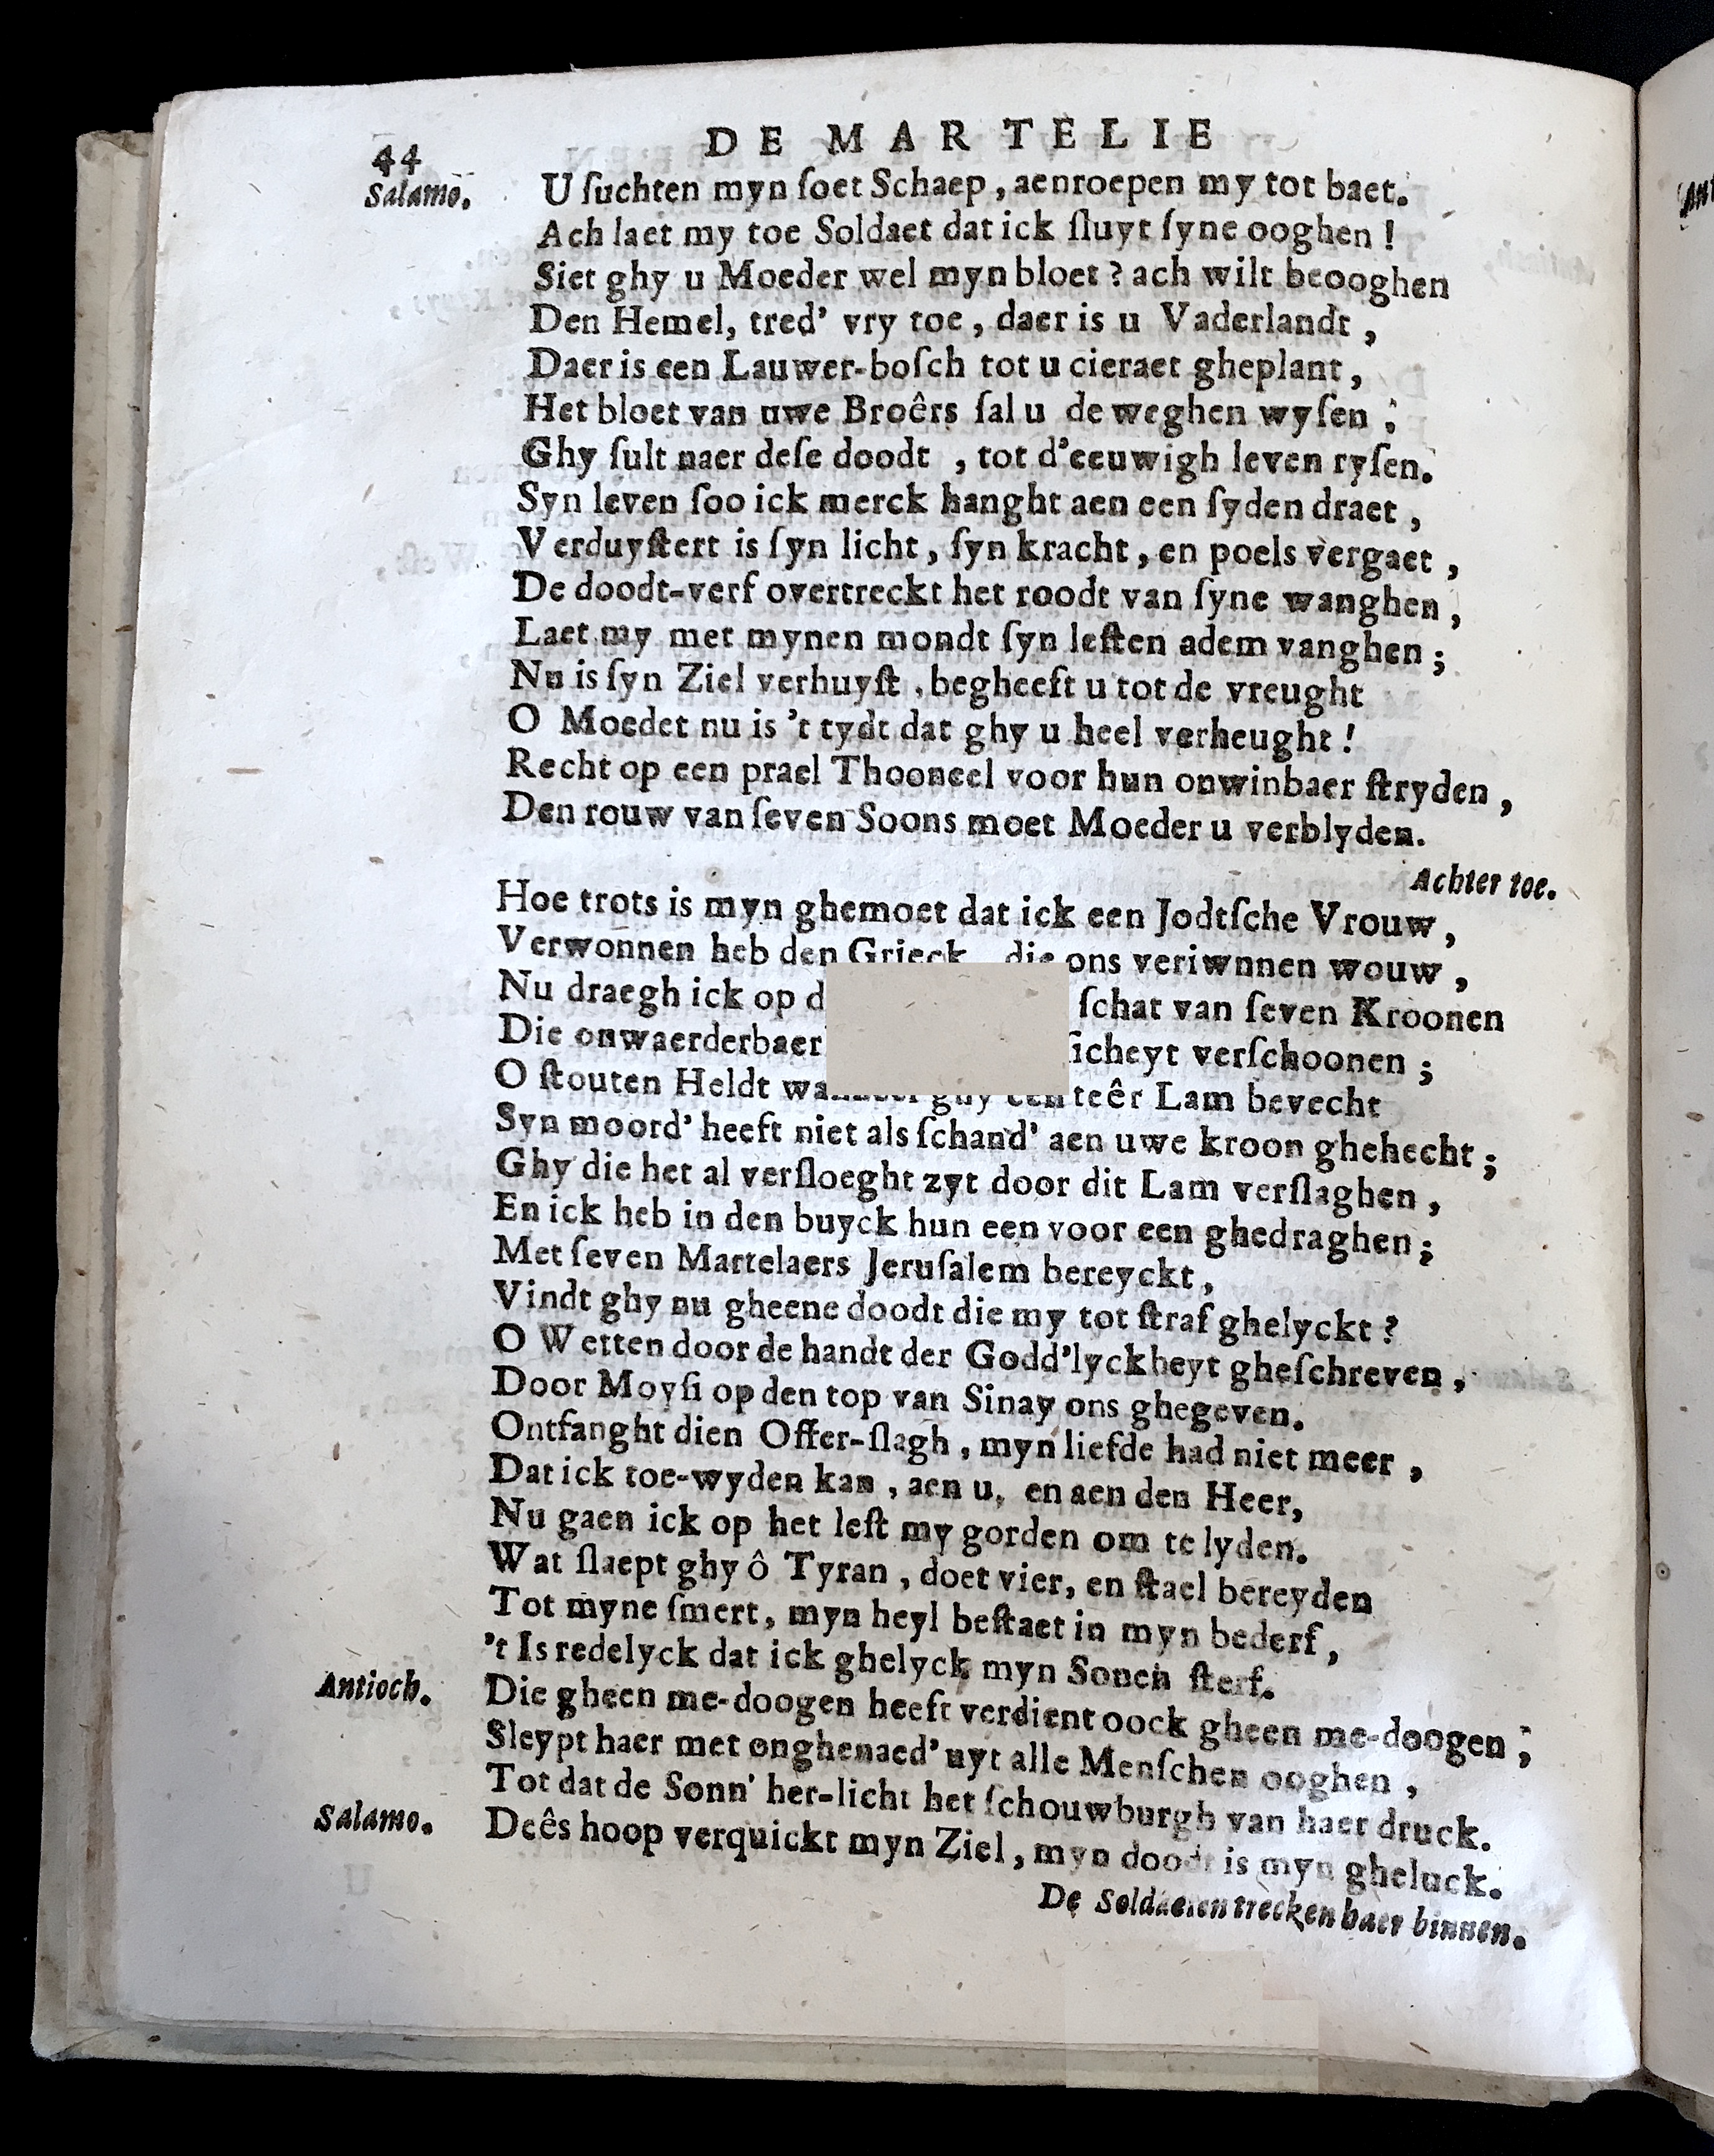 44 DE MARTELIE
Salamo. U ſuchten myn ſoet Schaep, aenroepen my tot baet.
Ach laet my toe Soldaet dat ick ſluyt ſyne ooghen!
Siet ghy u Moeder wel myn bloet? ach wilt beooghen
Den Hemel, tred' vry toe, daer is u Vaderlandt,
Daer is een Lauwer-boſch tot u cieraet gheplant,
Het bloet van uwe Broêrs ſal u de weghen wyſen;
Ghy ſult naer deſe doodt, tot d'eeuwigh leven ryſen.
Syn leven ſoo ick merck hanght aen een ſyden draet,
Verduyſtert is ſyn licht, ſyn kracht, en poels vergaet,
De doodt-verf overtreckt het roodt van ſyne wanghen,
Laet my met mynen mondt ſyn leſten adem vanghen;
Nu is ſyn Ziel verhuyſt, begheeft u tot de vreught
O Moedet nu is 't tydt dat ghy u heel verheught!
Recht op een prael Thooneel voor hun onwinbaer ſtryden,
Den rouw van ſeven Soons moet Moeder u verblyden.
Achter toe.
Hoe trots is myn ghemoet dat ick een Jodtſche Vrouw,
Verwonnen heb den Grieck die ons veriwnnen wouw,
Nu draegh ick op d ſchat van ſeven Kroonen
Die onwaerderbaer icheyt verſchoonen;
O ſtouten Heldt ghy een teêr Lam bevecht
Syn moord' heeft niet als ſchand' aen uwe kroon ghehecht;
Ghy die het al verſloeght zyt door dit Lam verſlaghen,
En ick heb in den buyck hun een voor een ghedraghen;
Met ſeven Martelaers Jeruſalem bereyckt,
Vindt ghy nu gheene doodt die my tot ſtraf ghelyckt?
O Wetten door de handt der Godd'lyckheyt gheſchreven,
Door Moyſi op den top van Sinay ons ghegeven.
Ontfanght dien Offer-ſlagh, myn liefde had niet meer,
Dat ick toe-wyden kan, aen u, en aen den Heer,
Nu gaen ick op het leſt my gorden om te lyden.
Wat ſlaept ghy ô Tyran, doet vier, en ſtael bereyden
Tot myne ſmert, myn heyl beſtaet in myn bederf,
't Is redelyck dat ick ghelyck myn Sonen ſterf.
Antioch. Die gheen me-doogen heeft verdient oock gheen me-doogen;
Sleypt haer met onghenaed' uyt alle Menſchen ooghen,
Tot dat de Sonn' her-licht het ſchouwburgh van haer druck.
Salamo. Deês hoop verquickt myn Ziel, myn doodt is myn gheluck.
De Soldaeten trecken haer binnen.